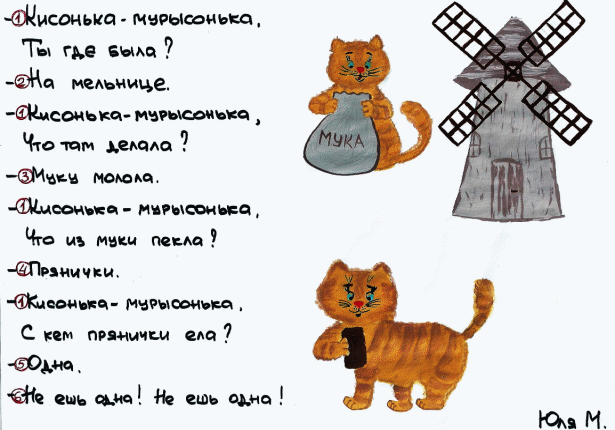 -①Кисонька-мурысонька,
Ты где была?
-②На мельнице.
-①Кисонька-мурысонька,
Что там делала?
-③Муку молола.
-①Кисонька-мурысонька,
Что из муки пекла?
-④Прянички.
-①Кисонька-мурысонька,
С кем прянички ела?
-⑤Одна.
-⑥Не ешь одна! Не ешь одна!
МУКА
Юля М.